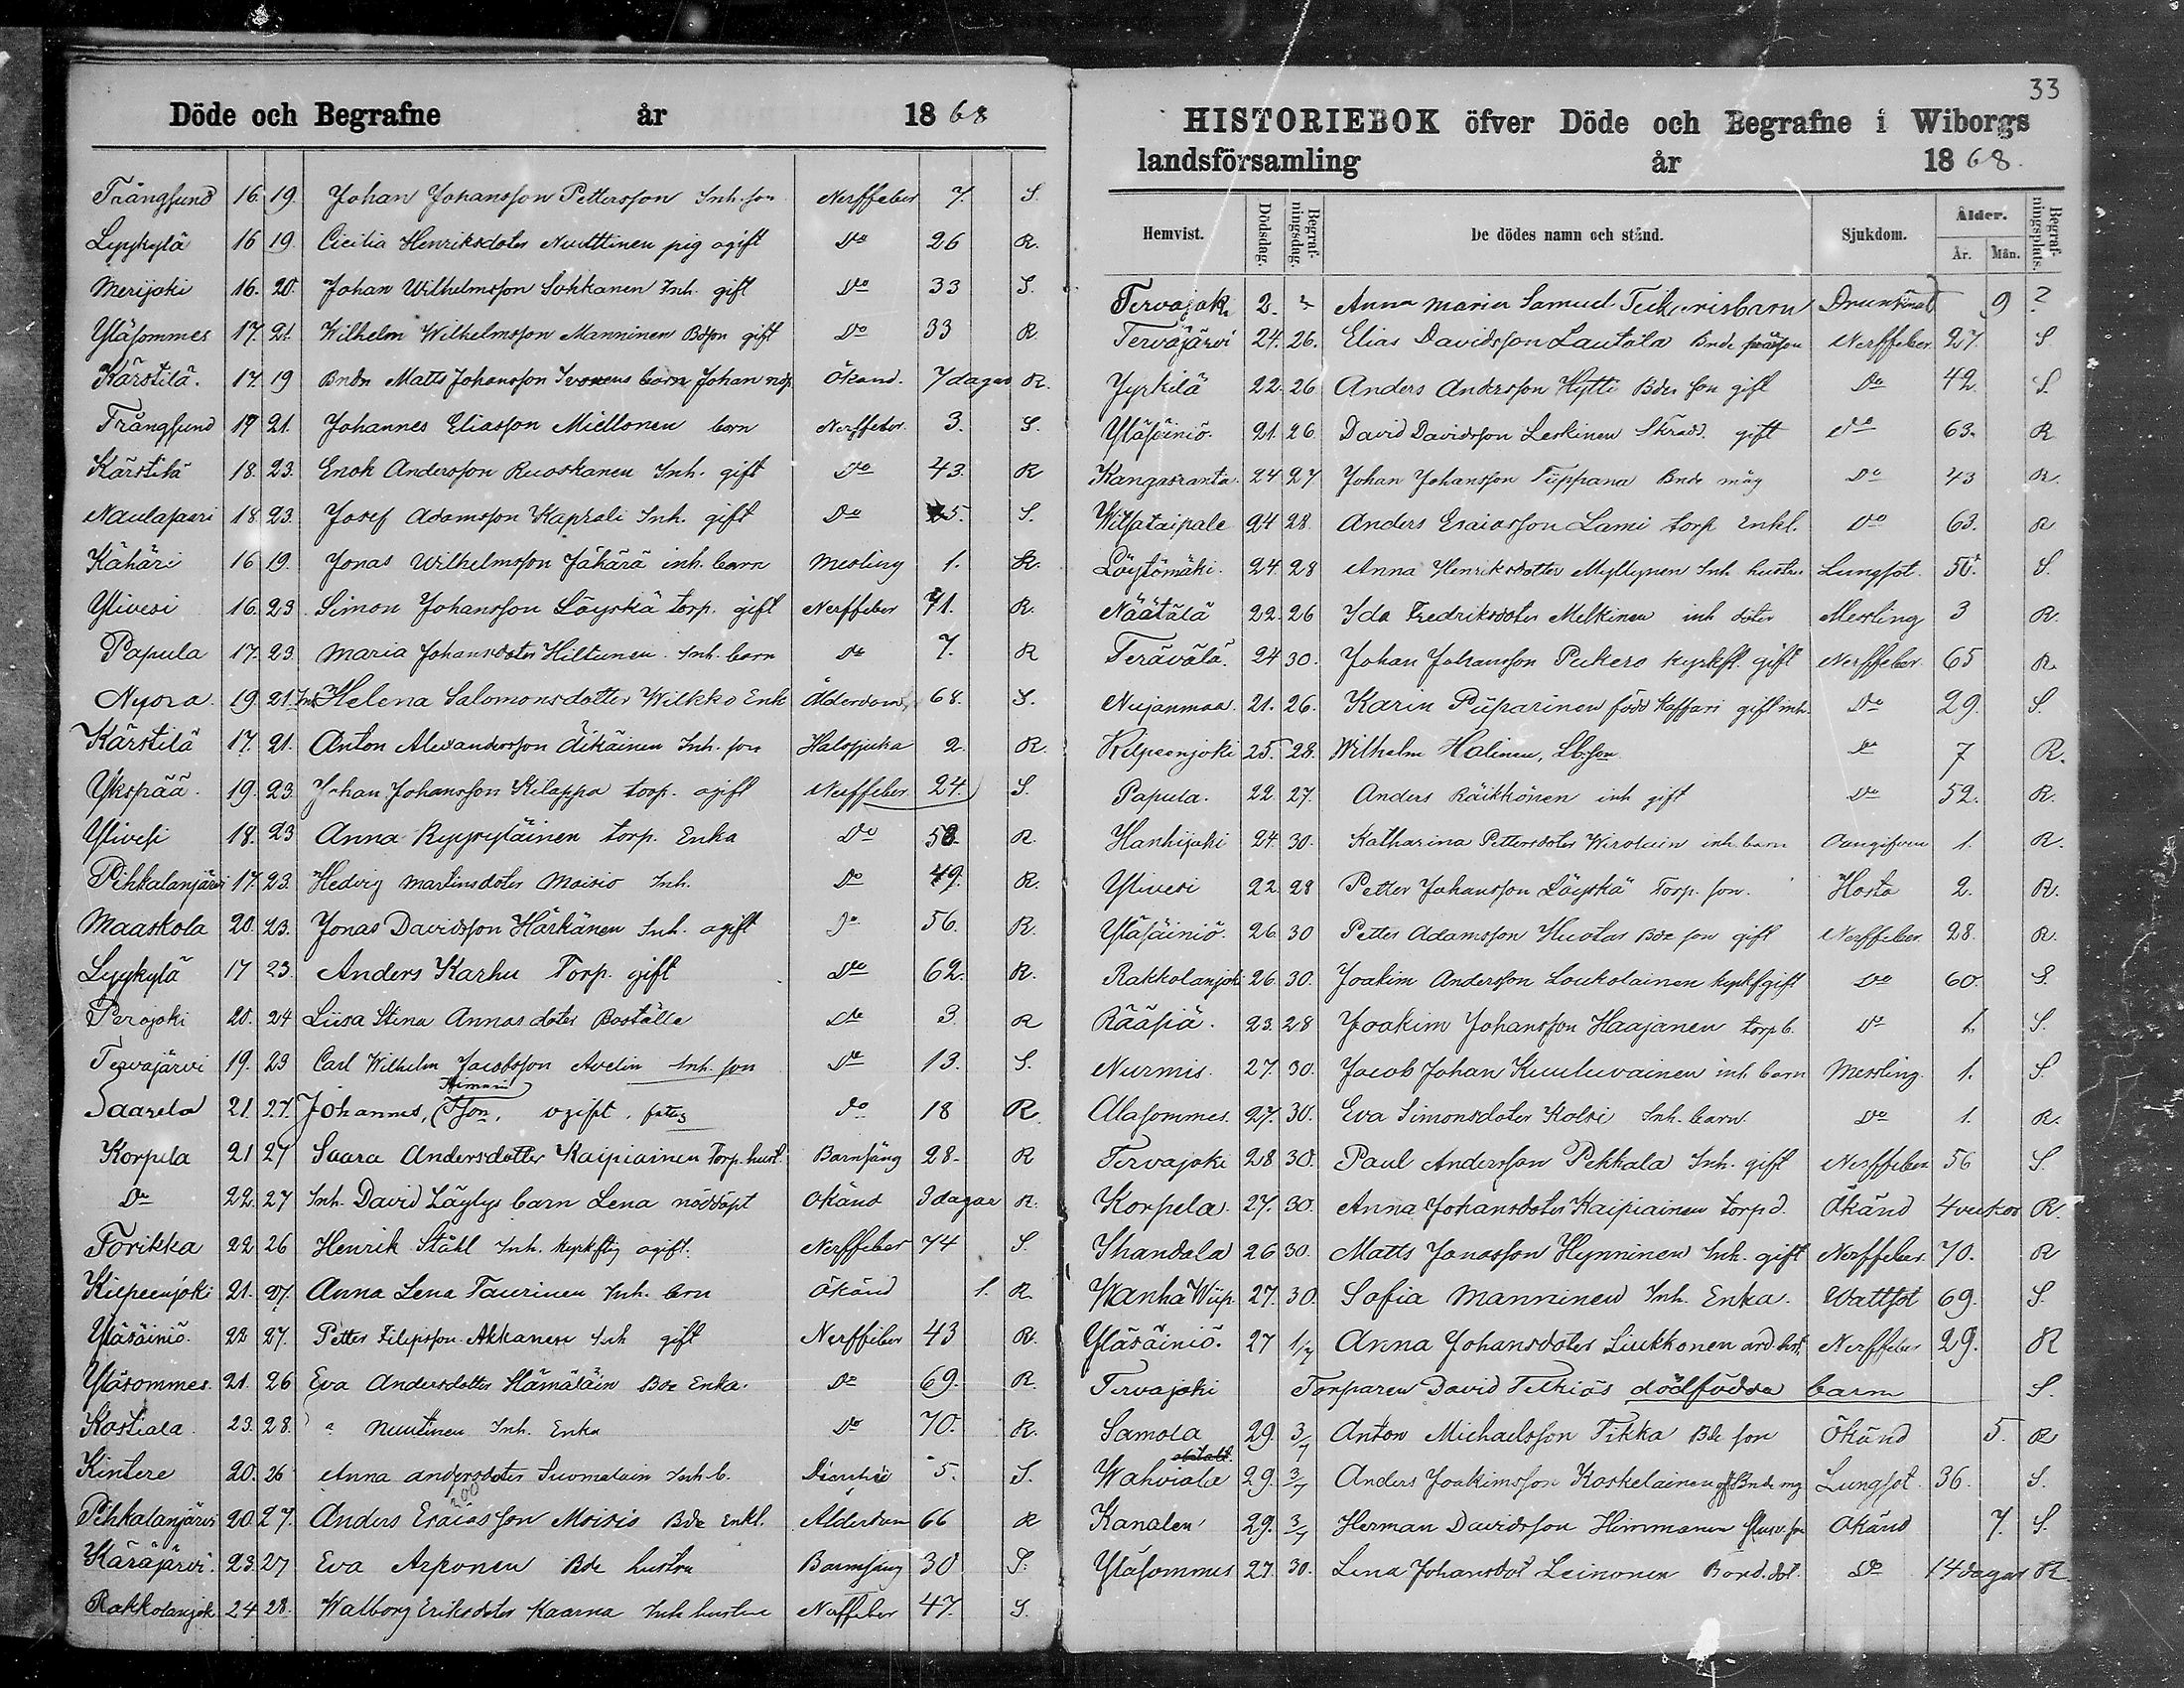 Döde och Begrafne år 1868
Trångsund 16. 19. Johan Johansson Pettersson Inh. son Nerffeber 7. S.
Lyykylä 16 19 Cicilia Henriksdoter Nuuttinen pig ogift Do 26 R.
Merijoki 16. 20. Johan Wilhelmsson Sokkanen Inh. gift Do 33 S.
Yläsommes 17. 21. Wilhelm Wilhelmsson Manninen Bdson gift Do 33 R.
Kärstilä. 17. 19 Bndn Matts Johansson barn Johan nöd Okänd. 7 dagar R.
Trångsund 19 21. Johannes Eliasson Miellonen barn Nerffeber 3. S.
Kärstilä 18. 23. Enok Andersson Ruoskanen Inh. gift Do 43. R
Naulasaari 18 23. Josef Adamsson Kaprali Inh. gift Do 5. S.
Kähäri 16 19. Jonas Wilhelmsson Jähärä inh. barn Mesling 1. R.
Ylivesi 16. 23 Simon Johansson Löyskä torp. gift Nerffeber 71. R.
Papula 17. 23. Maria Johansdoter Hiltunen Inh. barn Do 7. R
Nyora 19. 21. Inh Helena Salomonsdotter Wilkko Enk Ålderdom 68. S.
Kärstilä 17. 21. Anton Alexandersson Äikäinen Inh. son Halssjuka 2. R.
Ykspää. 19. 23 Johan Johansson Kilappa torp. ogift Nerffeber 24. S.
Ylivesi 18. 23 Anna torp. Enka Do 58. R.
Pihkalanjärvi 17. 23. Hedvig Martinsdoter Moisio Inh. Do 49. R.
Maaskola 20. 23. Jonas Davidsson Härkänen Inh. ogift Do 56. R.
Lyykylä 17 23. Anders Karhu Torp. gift Do 62. R.
Perojoki 20. 24 Liisa Stina Annasdoter Do 3 R
Tervajärvi 19. 23 Carl Wilhelm Jacobsson Avelin Inh. son Do 13. S.
Saarela 21. 27. Johannes, Tson, ogift, Do 18 R.
Korpela 21 27 Saara Andersdotter Kaipiainen Torp. hust. Barnsäng 28. R
Do 22. 27 Inh. David Läylys barn Lena nöddöpt Okänd 3 dagar R.
Torikka 22 26 Henrik Ståhl Inh. kyrkftig ogift. Nerffeber 74 S.
Kilpeenjoki 21. 27. Anna Lena Taurinen Inh. barn Okänd 1. R.
Yläsäiniö. 22 27. Petter Filipsson Akkanen Inh gift Nerffeber 43 R.
Yläsommes. 21. 26 Eva Andersdotter Hämäläin Bde Enka. Do 69. R.
Kostiala 23. 28. " Nuutinen Inh. Enka Do 70. R.
Kintere 20. 26 Anna andersdoter Suomalain Inh b. Diarrhé 5. S.
Pihkalanjärvi 20 27. Anders Esaiasson Moisio Bde Enkl. Ålderdom 66 R
Käräjärvi. 23. 27 Eva Arponen Bde hustru Barnsäng 30 S.
Rakkolanjok 24 28. Walborg Eriksdoter Kaarna Inh hustru Nerffeber 47. S.
33
HISTORIEBOK öfver Döde och Begrafne i Wiborgs
landsförsamling år 1868.
Hemvist. Dödsdag. Begrafningsdag. De dödes namn och stånd. Sjukdom. Ålder. År. Mån. Begrafningsplats.
Tervajok 2. ? Anna Maria Samuel barn Drunknat 9 ?
Tervajärvi 24. 26. Elias Davidsson Lautala Bnde Nerffeber 27. S
Jyrkilä 22. 26 Anders Andersson Hytti Bdes son gift Do 42. S.
Yläsäiniö. 21. 26. David Davidsson Leskinen Skradd. gift Do 63. R
Kangasranta. 24 27 Johan Johansson Tuppana Bnde måg Do 43 R.
Wilsataipale 24 28. Anders Esaiasson Lami torp Enkl. Do 63. R
Löytömäki. 24. 28 Anna Henriksdotter Myllynen Inh hustru Lungsot. 50. S.
Näätälä 22. 26 Ida Fredriksdoter Melkinen inh doter Messling 3 R.
Terävälä. 24 30. Johan Johansson Pukero kyrkft. gift Nerffeber 65 R.
Nujanmaa. 21. 26. Karin Piiparinen född Kaffari gift inh. Do 29. S.
Kilpeenjoki 25. 28. Wilhelm Halinen, Lbson Do 7 R.
Papula. 22. 27. Anders Räikkönen inh gift Do 52. R.
Hanhijoki 24. 30. Katharina Pettersdoter Wirolain inh. barn Oangifven 1. R.
Ylivesi 22. 28 Petter Johansson Löyskä Torp. son. Hosta 2. R.
Yläsäiniö. 26. 30 Petter Adamsson Huotar Bde son gift Nerffeber 28. R.
Rakkolanjok 26. 30. Joakim Andersson Loukolainen kyrkf gift Do 60. S.
Rääsiä. 23. 28 Joakim Johansson Haajanen torp b. Do 1. S.
Nurmis. 27. 30. Jacob Johan Kuuluvainen inh barn Messling. 1. S.
Alasommes. 27. 30. Eva Simonsdoter Kolsi Inh. barn Do 1. R.
Tervajoki 28 30. Paul Andersson Pekkala Inh. gift Nerffeber 56 S.
Korpela. 27. 30. Anna Johansdoter Kaipiainen torp d. Okänd 4 veckor R.
Ihandala 26 30. Matts Jonasson Hynninen Inh. gift Nerffeber 70. R
Wanha Wiip. 27. 30. Sofia Manninen Inh. Enka. Wattsot 69. S.
Yläsäiniö. 27 1/7 Anna Johansdoter Liukkonen ard. hst. Nerffeber 29. R
Tervajoki Torparen David Telkiäs dödfödda barn S.
Samola 29. 3/7 Anton Michaelsson Tikka Bde son Okänd 5. R
Wahviala 29. 3/7 Anders Joakimsson Koskelainen gft Bnde mg Lungsot. 36. S.
Kanalen 29. 3/7 Herman Davidsson Himmanen son Okänd 7. S.
Yläsommes 27. 30. Lena Johansdot Leinonen Bond. dot. Do 14 dagar R.